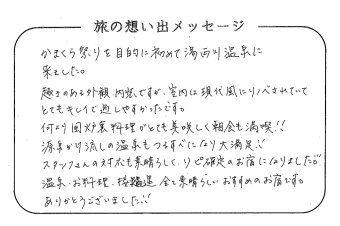 旅の想い出メッセージ
かまくら祭りを目的に初めて湯西川温泉に
来ました。
趣きのある外観、内装ですが、室内は現代風にリノベされていて
とてもキレイで過しやすかったです。
何より囲炉裏料理がとても美味しく朝食も満喫!!
源泉かけ流しの温泉もつるすべになり大満足!!
スタッフさんの対応も素晴らしく、リピ確定のお宿になりました!!
温泉、お料理、接遇 全て素晴らしい おすすめのお宿です。
ありがとうございました!!